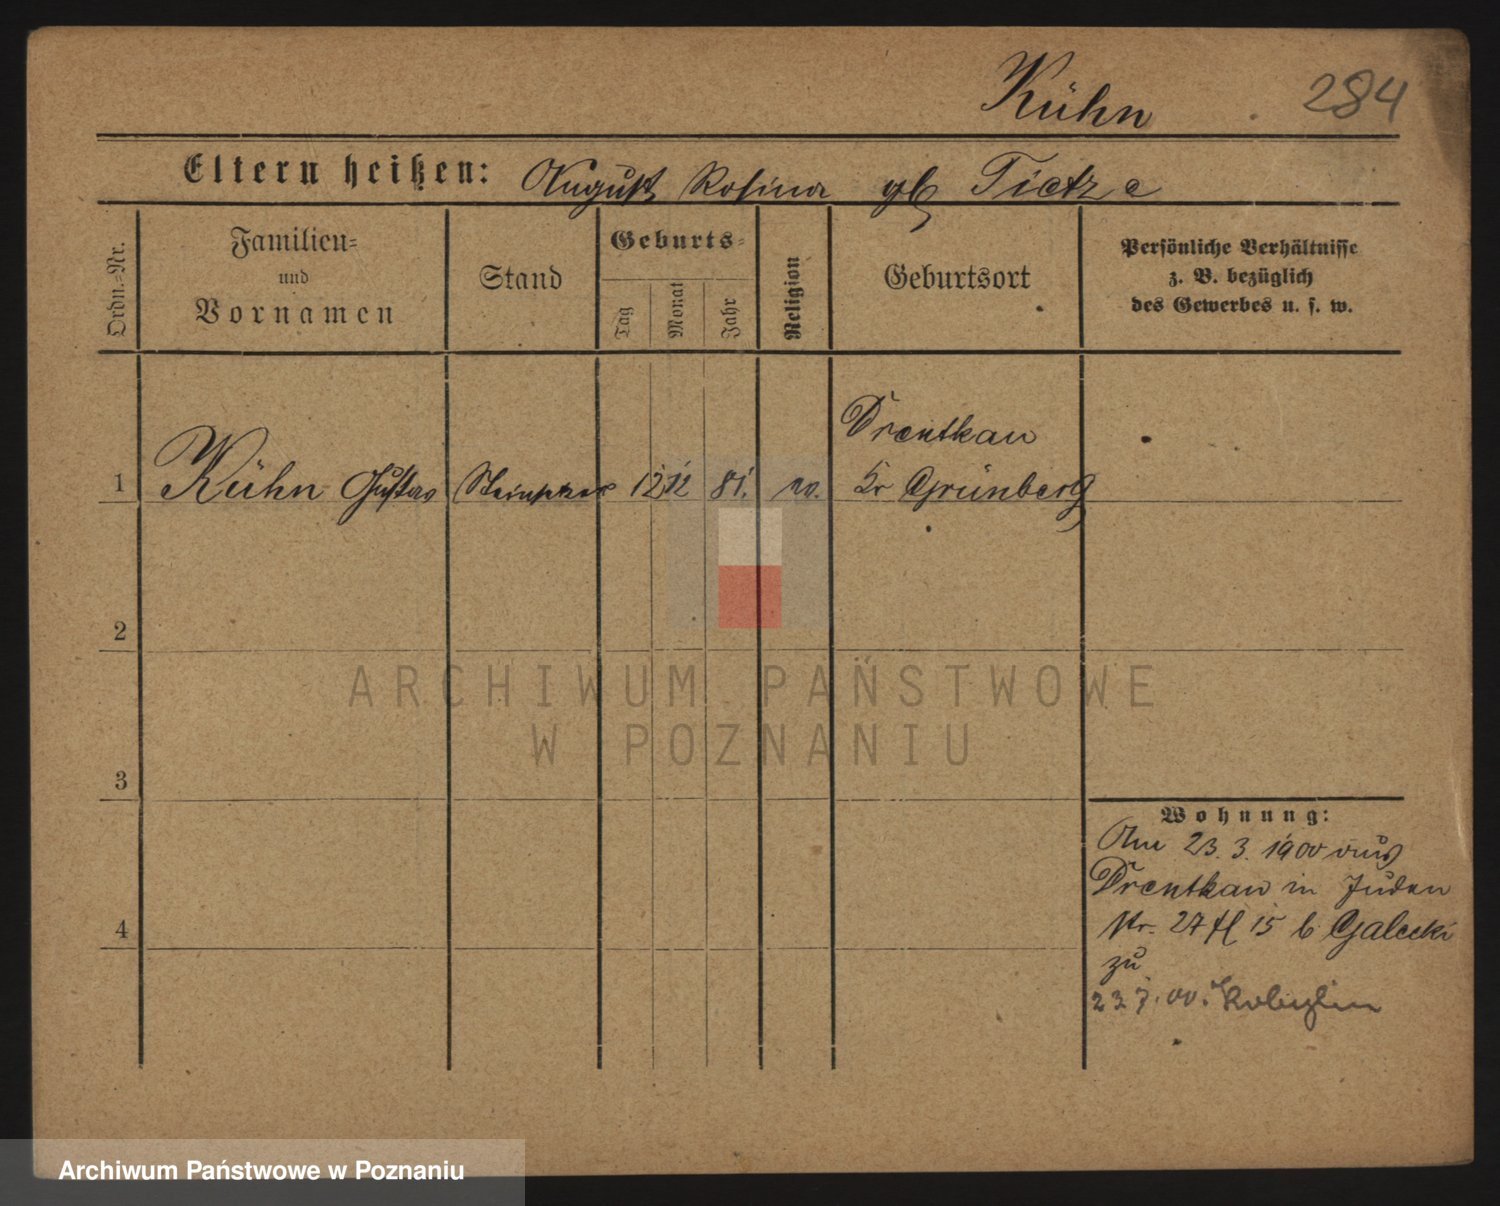 Kühn 284
Eltern heißen: August Rosina gb Tietze
Ordn.-Nr.
Familien-
und
Vornamen
Stand
Geburts-
Tag
Monat
Jahr
Religion
Geburtsort
Persönliche Verhältnisse
z. B. bezüglich
des Gewerbes u. s. w.
Drentkau
1 Kühn Gustav 12 12 81. ev. Kr Grünberg
2
3
4
Wohnung:
Am 23. 3. 1900 aus
Drentkau in Juden
str. 27 II 15 b Galecki
zu
23 7. 00. Kobylin
ARCHIWUM PAŃSTWOWE
W POZNANIU
Archiwum Państwowe w Poznaniu